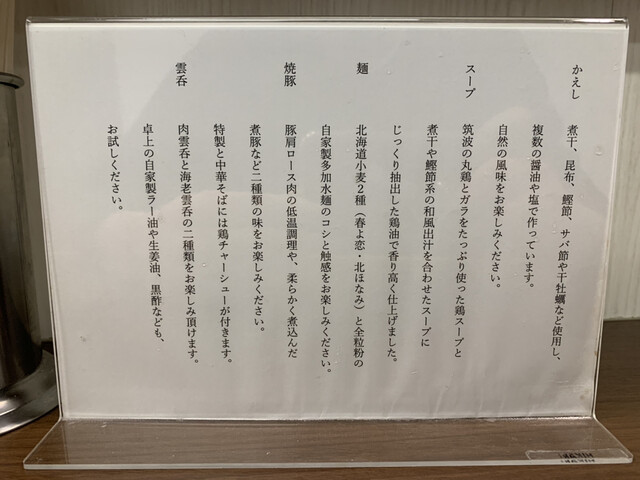 かえし
煮干、昆布、鰹節、サバ節や干牡蠣など使用し、
複数の醤油や塩で作っています。
自然の風味をお楽しみください。
スープ
筑波の丸鶏とガラをたっぷり使った鶏スープと
煮干や鰹節系の和風出汁を合わせたスープに
じっくり抽出した鶏油で香り高く仕上げました。
麺
北海道小麦2種（春よ恋・北ほなみ）と全粒粉の
自家製多加水麺のコシと触感をお楽しみください。
焼豚
豚肩ロース肉の低温調理や、柔らかく煮込んだ
煮豚など二種類の味をお楽しみください。
特製と中華そばには鶏チャーシューが付きます。
雲呑
肉雲呑と海老雲呑の二種類をお楽しみ頂けます。
卓上の自家製ラー油や生姜油、黒酢なども、
お試しください。